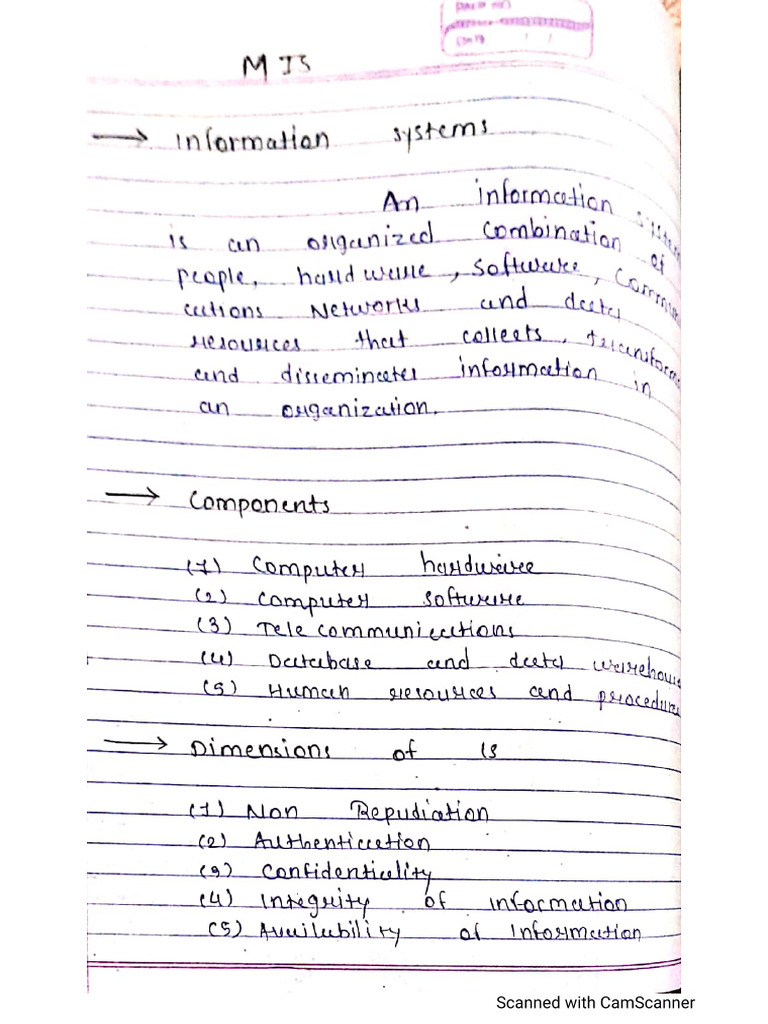 MIS
→ Information systems
An information system
is an organized combination of
people, hardware, software, commun
ications Networks and data
resources that collects, transforms
and disseminates information in
an organization.
→ Components
(1) Computer hardware
(2) Computer software
(3) Tele communications
(4) Database and data warehous
(5) Human resources and procedures
→ Dimensions of IS
(1) Non Repudiation
(2) Authentication
(3) Confidentiality
(4) Integrity of information
(5) Availability of Information
Scanned with CamScanner